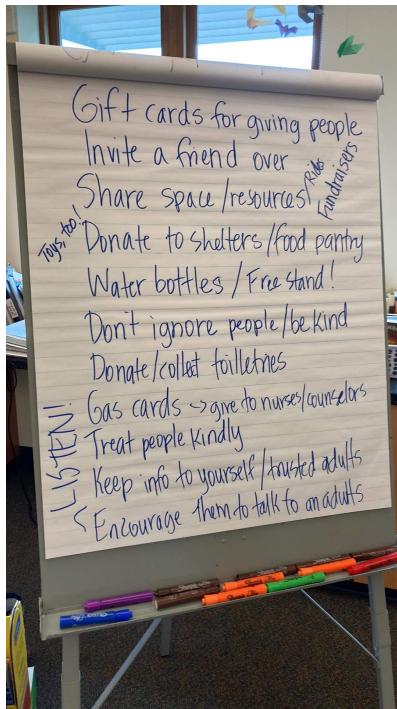 Gift cards for giving people
Invite a friend over
Share space/resources/Rides
Fundraisers
Toys, too!
Donate to shelters/food pantry
Water bottles/Free stand!
Don't ignore people/be kind
Donate/collect toiletries
Gas cards → give to nurses/counselors
Treat people kindly
LISTEN!
Keep info to yourself/trusted adults
Encourage them to talk to an adults